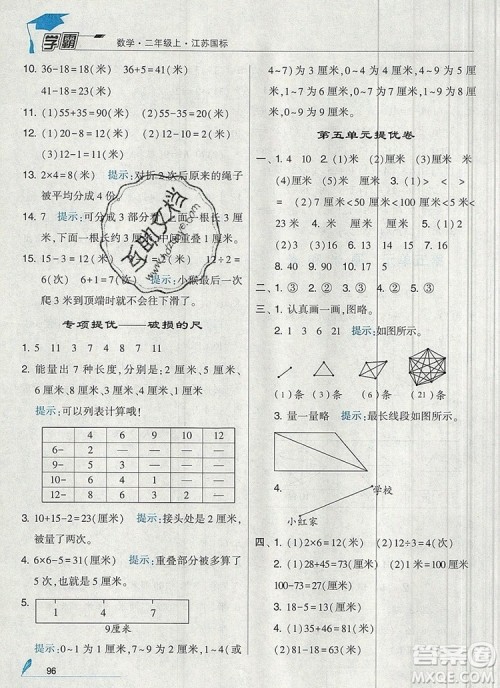 学霸
数学·二年级上·江苏国标
10. 36-18=18(米) 18+5=23(米) 18+23=
41(米)
11. (1)55+35=90(米) (2)45+55=100(米)
12. (1)20-8= (米) (2)10
(3)12-1=11(米)
13. 2×4=8(米) 提示:对折2次后原来的绳子
被平均分成4份。
14. 7 提示:可分成3部分
米,下面一根长3厘米,中间重叠1厘米。
15. 15-3=12(米) (米) 12÷2=
6(次) 6+1=7(次) 提示:小猴最后一次
爬3米到顶端时就不往下滑了。
专项提优——破损的尺
1. 5 11 3 4 8 7 11
2. 能量出7种长度,分别是:2厘米、4厘
米、5厘米、6厘米、7厘米、8厘米、9厘米。
提示:可以列表计算哦!
4 6 9 12
6- 2 0
10- 6 4 1
11- 7 5 2
12- 8 6 3 0
3. 10+15-2=23(厘米) 提示:接头处是2厘米,
被量了两次。
4. 6×6-5=31(厘米) 提示:重叠部分被多算了
5次。
5.
1 4 7
9厘米
提示:0~1或7~8是1厘米,1~4(或
96
4~7)为3厘米,0~4是4厘米,4~9为5厘
米,1~7为6厘米,0~7为7厘米,1~9为8厘
米,0~9为9厘米。
第五单元提优卷
一、1. 4 10 2. (1)厘米 (2)米 (3)厘米
(4)厘米 (5)米 3. (1)> < >
(2)< > = 4. 35 6 5
5. (1)1 (2)3 6. 7 7. (1)15 3 12
8. 40 9. 90 10. 17 5
二、1. ③ 2. ③ 3. ② 4. ① 5. ③
三、1. 认真画一画,图略。
2. 1 3 6 21 提示:如图所示。
(1)条 (3)条 (6)条 (21)条
3. 量一量略 提示:最长线段如图所示。
4.
学校
小红家
四、1. (1)2×6=12(米) (2)12÷3=4(米)
2. (1)100-45=55(厘米) 55+18=73(厘米)
100-73=27(厘米)
3. (1)8-1=7(厘米)